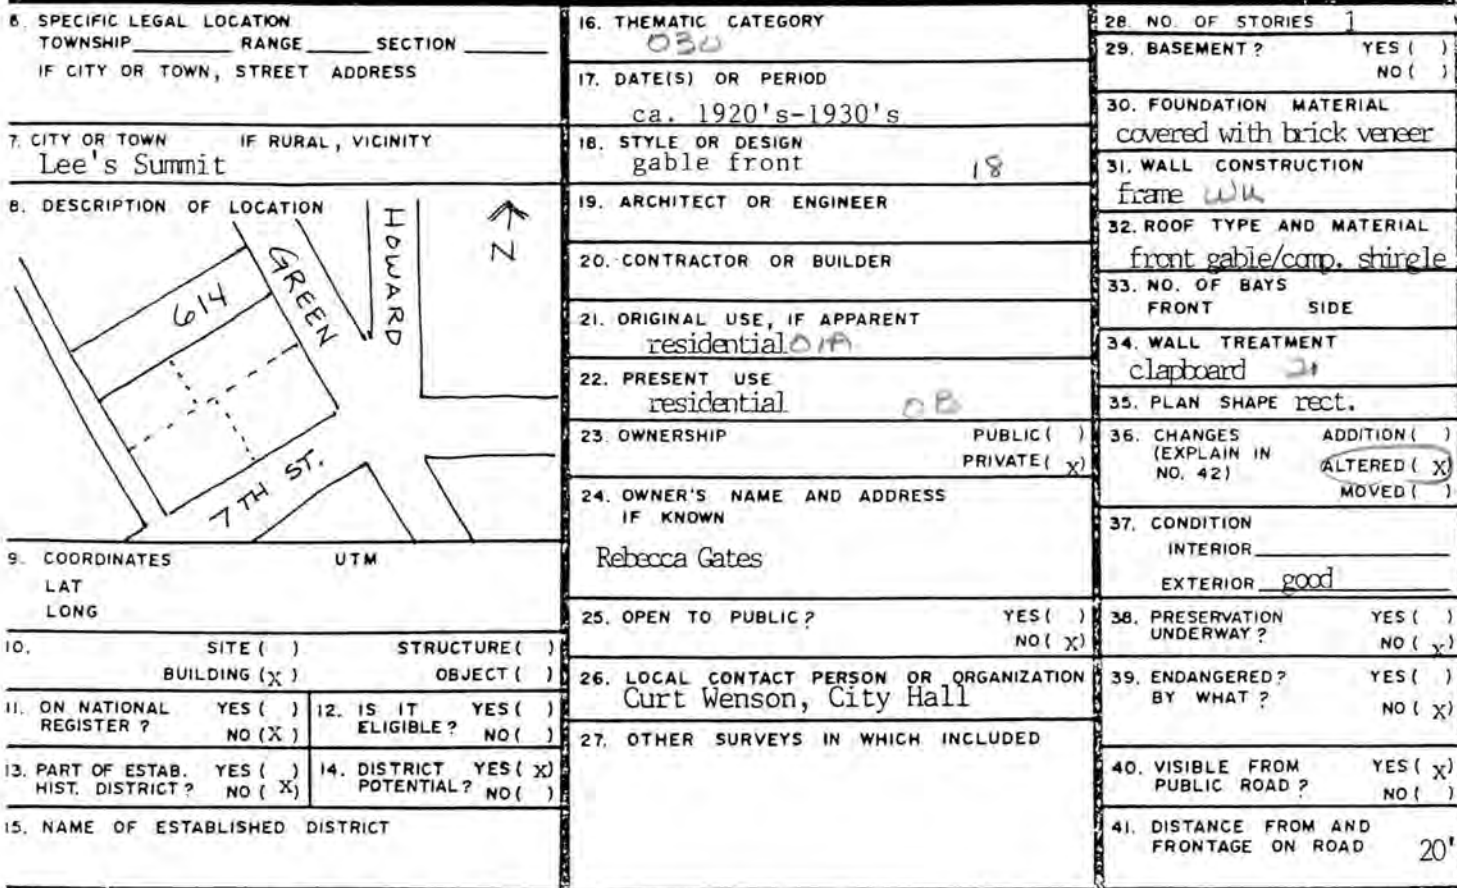 6. SPECIFIC LEGAL LOCATION
TOWNSHIP RANGE SECTION
IF CITY OR TOWN, STREET ADDRESS
7. CITY OR TOWN IF RURAL, VICINITY
Lee's Summit
8. DESCRIPTION OF LOCATION
HOWARD
N
GREEN
614
7TH ST.
9. COORDINATES UTM
LAT
LONG
10. SITE ( ) STRUCTURE ( )
BUILDING (X) OBJECT ( )
11. ON NATIONAL REGISTER? YES ( )
NO (X)
12. IS IT ELIGIBLE? YES ( )
NO ( )
13. PART OF ESTAB. HIST. DISTRICT? YES ( )
NO ( X)
14. DISTRICT POTENTIAL? YES ( X)
NO ( )
15. NAME OF ESTABLISHED DISTRICT
16. THEMATIC CATEGORY
030
17. DATE(S) OR PERIOD
ca. 1920's-1930's
18. STYLE OR DESIGN
gable front 18
19. ARCHITECT OR ENGINEER
20. CONTRACTOR OR BUILDER
21. ORIGINAL USE, IF APPARENT
residential 01A
22. PRESENT USE
residential
23. OWNERSHIP PUBLIC ( )
PRIVATE ( X)
24. OWNER'S NAME AND ADDRESS
IF KNOWN
Rebecca Gates
25. OPEN TO PUBLIC? YES ( )
NO ( X)
26. LOCAL CONTACT PERSON OR ORGANIZATION
Curt Wenson, City Hall
27. OTHER SURVEYS IN WHICH INCLUDED
28. NO. OF STORIES 1
29. BASEMENT? YES ( )
NO ( )
30. FOUNDATION MATERIAL
covered with brick veneer
31. WALL CONSTRUCTION
frame
32. ROOF TYPE AND MATERIAL
front gable/comp. shingle
33. NO. OF BAYS
FRONT SIDE
34. WALL TREATMENT
clapboard 21
35. PLAN SHAPE rect.
36. CHANGES ADDITION ( )
(EXPLAIN IN ALTERED ( X)
NO. 42) MOVED ( )
37. CONDITION
INTERIOR
EXTERIOR good
38. PRESERVATION YES ( )
UNDERWAY? NO ( X)
39. ENDANGERED? YES ( )
BY WHAT? NO ( X)
40. VISIBLE FROM YES ( X)
PUBLIC ROAD? NO ( )
41. DISTANCE FROM AND
FRONTAGE ON ROAD 20'